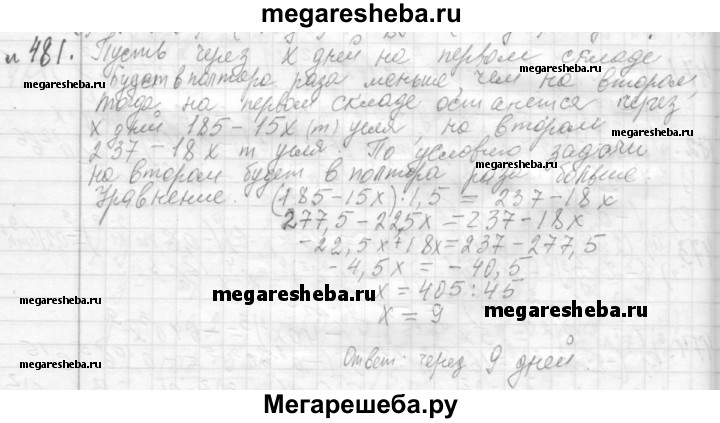 megaresheba.ru
№ 481. Пусть через x дней на первом складе
будет в полтора раза меньше, чем на втором,
megaresheba.ru
megaresheba.ru
тогда на первом складе останется через
x дней 185 - 15x (т) угля на втором
237 - 18x т угля. По условию задачи
megaresheba.ru
на втором будет в полтора раза больше.
Уравнение. (185-15x)·1,5 = 237-18x
277,5 - 225x = 237 - 18x
-22,5x+18x=237-277,5
-4,5x = -40,5
megaresheba.ru
megaresheba.ru
x = 405:45
megaresheba.ru
x = 9
megaresheba.ru
Ответ: через 9 дней.
Мегарешеба.ру